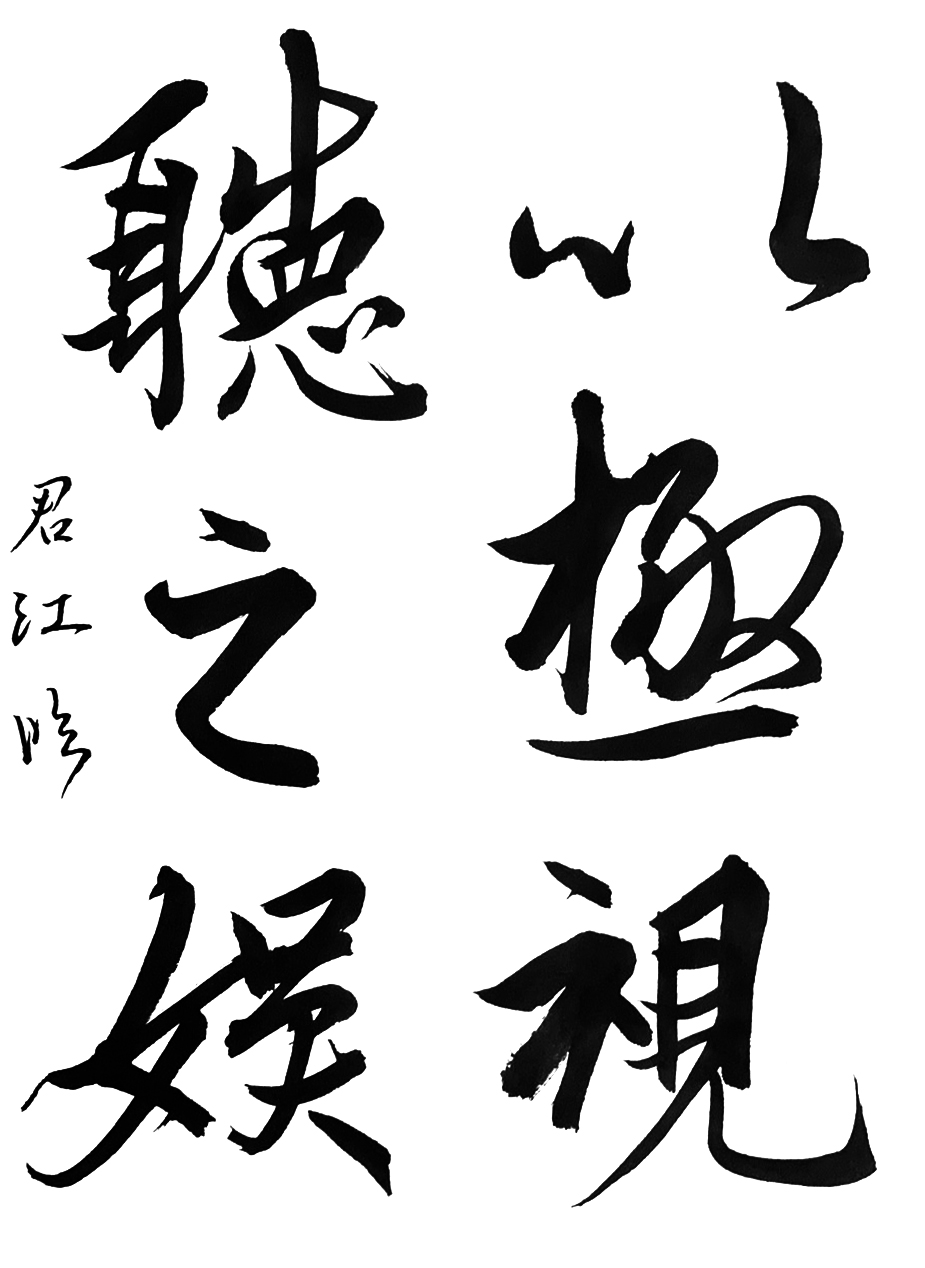 以極視
聽之娛
君江臨